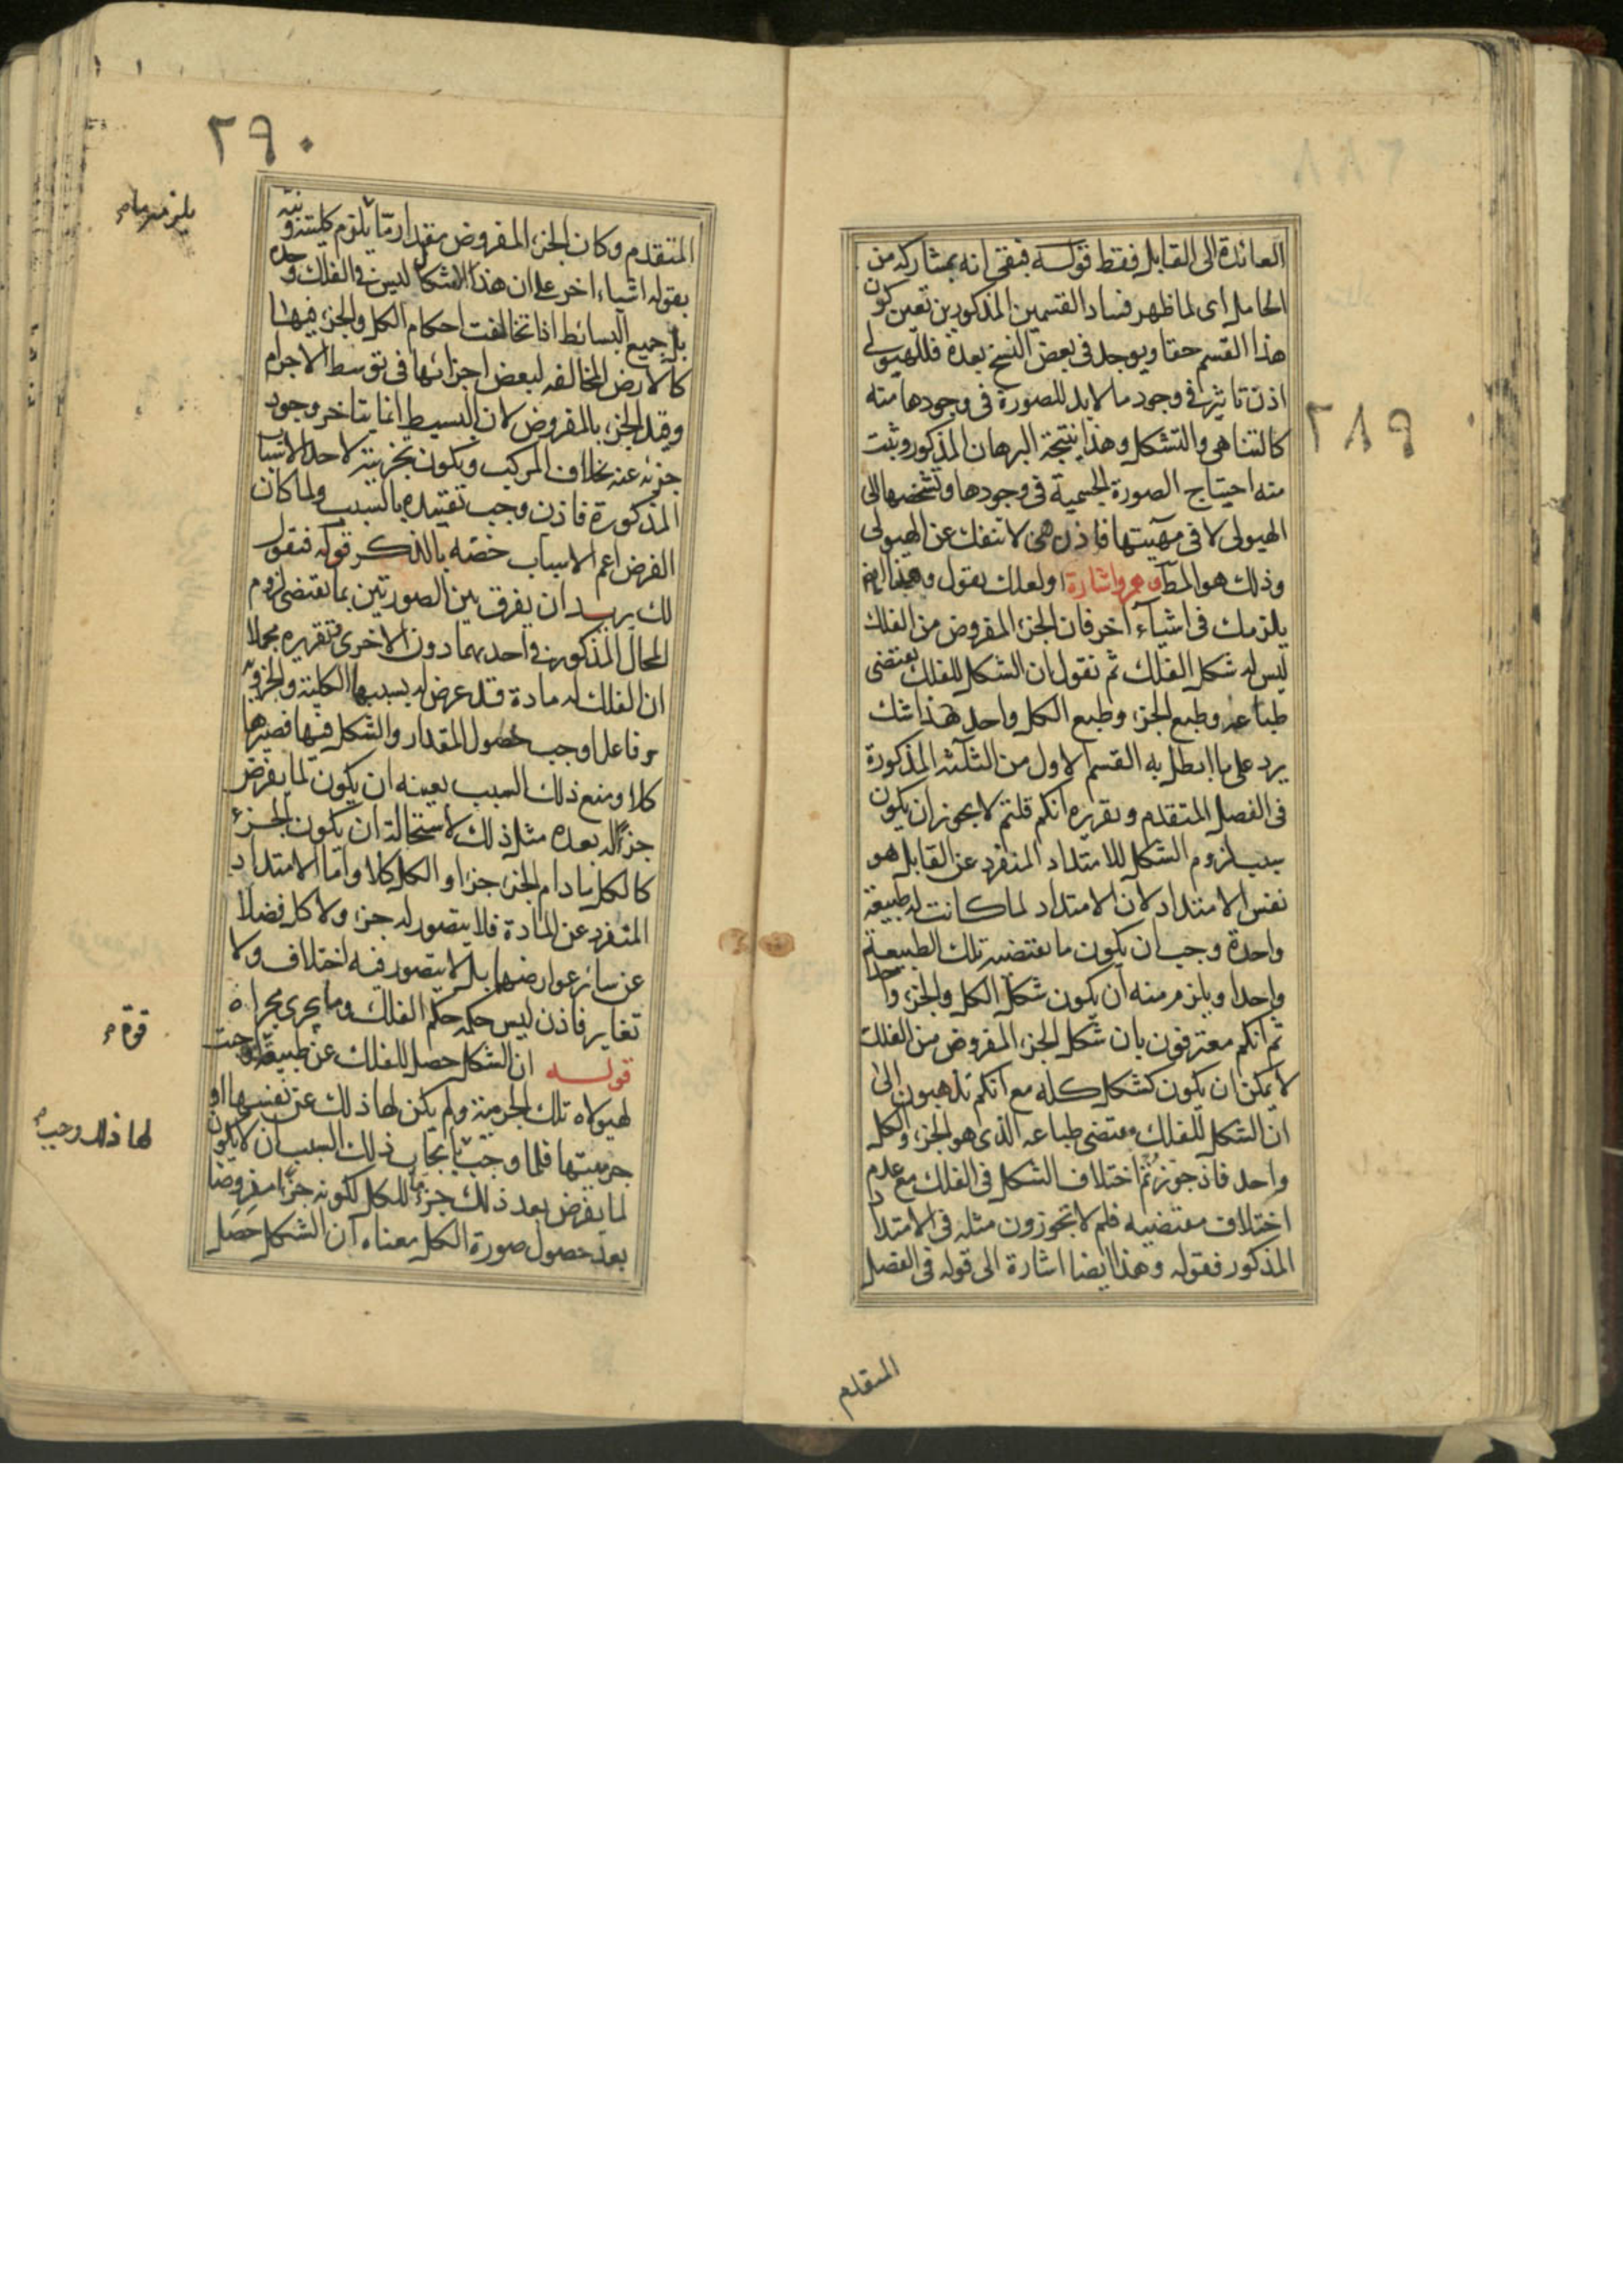 العائدة الى القابل فقط قوله فبقى انه بمشاركة من
الحامل اى لما ظهر فساد القسمين المذكورين تعين كون
هذا القسم حقا ويوجد فى بعض النسخ بعده فللهيولى
اذن تاثير فى وجود ما لا بد للصورة فى وجودها منه
كالتناهى والتشكل وهذا نتيجة البرهان المذكور وثبت
منه احتياج الصورة الجسمية فى وجودها وتشخصها الى
الهيولى لا فى مهيتها فاذن هى لا تنفك عن الهيولى
وذلك هو المط وهم واشارة اولعلك يقول وهذا ايضا
يلزمك فى اشياء اخر فان الجزء المفروض من الفلك
ليس له شكل الفلك ثم نقول ان الشكل للفلك يقتضى
طباعه وطبع الجزء وطبع الكل واحد هذا شك
يرد على ما ابطل به القسم الاول من الثلثة المذكورة
فى الفصل المتقدم وتقريره انكم قلتم لا يجوز ان يكون
سبب لزوم الشكل للامتداد المنفرد عن القابل هو
نفس الامتداد لان الامتداد لما كانت له طبيعة
واحدة وجب ان يكون ما تقتضيه تلك الطبيعة
واحدا ويلزم منه ان يكون شكل الكل والجزء واحدا
ثم انكم معترفون بان شكل الجزء المفروض من الفلك
لا يمكن ان يكون كشكل كله مع انكم تذهبون الى
ان الشكل للفلك مقتضى طباعه الذى هو الجزء والكل
واحد فاذ جوزتم اختلاف الشكل فى الفلك مع عدم
اختلاف مقتضيه فلم لا تجوزون مثله فى الامتداد
المذكور فقوله وهذا ايضا اشارة الى قوله فى الفصل
المتقدم
٢٨٩
٢٩٠
المتقدم وكان الجزء المفروض من مقدار ما يلزم كليته ونبّه
بقوله اشياء اخر على ان هذا الاشكال ليس فى الفلك وحده
بل جميع البسائط اذا تخالفت احكام الكل والجزء فيها
كالارض المخالفه لبعض اجزائها فى توسط الاجرام
وقيد الجزء بالمفروض لان البسيط انما يتاخر وجود
جزئه عنه بخلاف المركب ويكون تجزيته لاحد الاسباب
المذكورة فاذن وجب تقييده بالسبب ولما كان
الفرض اعم الاسباب خصه بالذكر قوله فنقول
لك يريد ان يفرق بين الصورتين بما يقتضى لزوم
المحال المذكور فى احديهما دون الاخرى وتقريره مجملا
ان الفلك له مادة قد عرض له بسببها الكلية والجزئية
وفاعل اوجب حصول المقدار والشكل فيها فصيرها
كلا ومنع ذلك السبب بعينه ان يكون لما يفرض
جزءا له بعده مثل ذلك لاستحالة ان يكون الجزء
كالكل ما دام الجزء جزءا والكل كلا واما الامتداد
المنفرد عن المادة فلا يتصور له جزء ولا كل فضلا
عن سائر عوارضها بل لا يتصور فيه اختلاف ولا
تغاير فاذن ليس حكمه حكم الفلك وما يجرى مجراه
قوله ان الشكل حصل للفلك عن طبيعة اوجبت
لهيولاه تلك الجرمية ولم يكن لها ذلك عن نفسها او
جرميتها فلما وجب بايجاب ذلك السبب ان لا يكون
لما يفرض بعد ذلك جزءا ما للكل لكونه جزءا مفروضا
بعد حصول صورة الكل معناه ان الشكل حصل
قوة
لها ذلك وجب